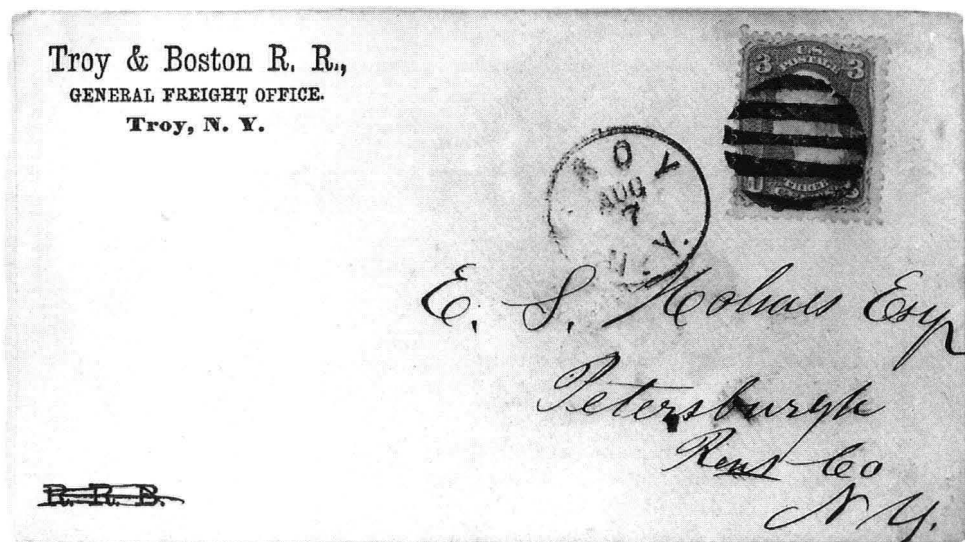 Troy & Boston R. R.,
GENERAL FREIGHT OFFICE.
Troy, N. Y.
3 U.S. POSTAGE 3
ROY
AUG
7
N. Y.
E. S. Holmes Esqr
Petersburgh
Rens Co
N Y.
R. R. B.